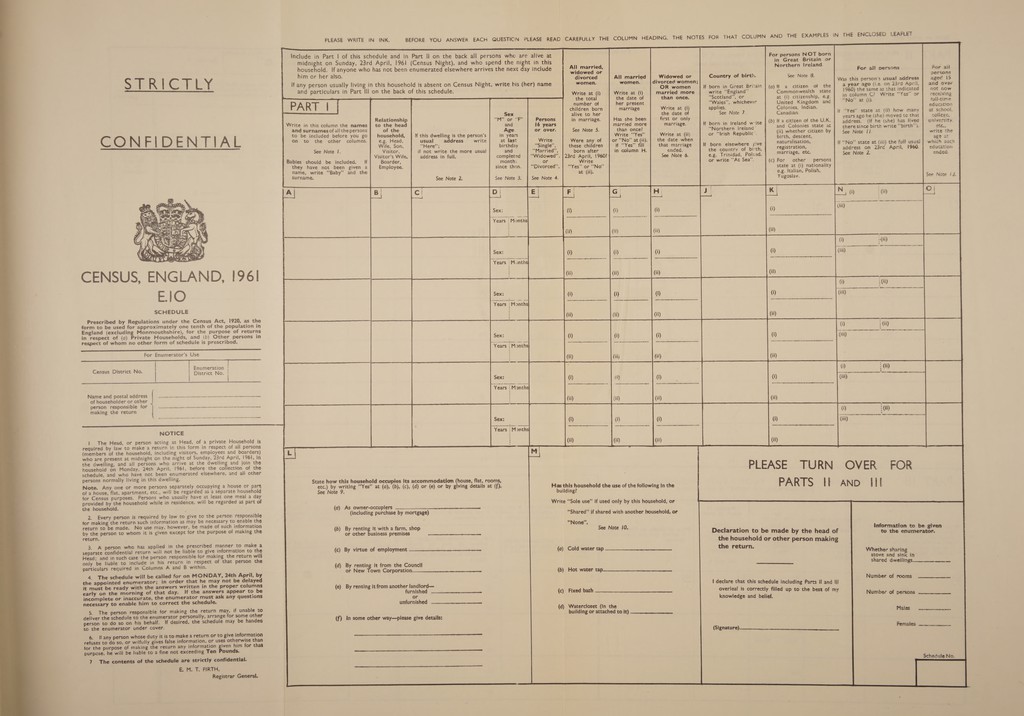 PLEASE WRITE IN INK. BEFORE YOU ANSWER EACH QUESTION PLEASE READ CAREFULLY THE COLUMN HEADING, THE NOTES FOR THAT COLUMN AND THE EXAMPLES IN THE ENCLOSED LEAFLET
STRICTLY
CONFIDENTIAL
CENSUS, ENGLAND, 1961
E.10
SCHEDULE
Prescribed by Regulations under the Census Act, 1920, as the
form to be used for approximately one tenth of the population in
England (excluding Monmouthshire), for the purpose of returns
in respect of (a) Private Households, and (b) Other persons in
respect of whom no other form of schedule is prescribed.
For Enumerator's Use
Census District No.
Enumeration
District No.
Name and postal address
of householder or other
person responsible for
making the return
NOTICE
1 The Head, or person acting as Head, of a private Household is
required by law to make a return in this form in respect of all persons
(members of the household, including visitors, employees and boarders)
who are present at midnight on the night of Sunday, 23rd April, 1961, in
the dwelling, and all persons who arrive at the dwelling and join the
household on Monday, 24th April, 1961, before the collection of the
schedule, and who have not been enumerated elsewhere, and all other
persons normally living in this dwelling.
Note. Any one or more persons separately occupying a house or part
of a house, flat, apartment, etc., will be regarded as a separate household
for Census purposes. Persons who usually have at least one meal a day
provided by the household while in residence, will be regarded as part of
the household.
2. Every person is required by law to give to the person responsible
for making the return such information as may be necessary to enable the
return to be made. No use may, however, be made of such information
by the person to whom it is given except for the purpose of making the
return.
3. A person who has applied in the prescribed manner to make a
separate confidential return will not be liable to give information to the
Head; and in such case the person responsible for making the return will
only be liable to include in his return in respect of that person the
particulars required in Columns A and B within.
4. The schedule will be called for on MONDAY, 24th April, by
the appointed enumerator; in order that he may not be delayed
it must be ready with the answers written in the proper columns
early on the morning of that day. If the answers appear to be
incomplete or inaccurate, the enumerator must ask any questions
necessary to enable him to correct the schedule.
5. The person responsible for making the return may, if unable to
deliver the schedule to the enumerator personally, arrange for some other
person to do so on his behalf. If desired, the schedule may be handed
to the enumerator under cover.
6. If any person whose duty it is to make a return or to give information
refuses to do so, or wilfully gives false information, or uses otherwise than
for the purpose of making the return any information given him for that
purpose, he will be liable to a fine not exceeding Ten Pounds.
7 The contents of the schedule are strictly confidential.
E. M. T. FIRTH,
Registrar General.
Include in Part I of this schedule and in Part II on the back all persons who are alive at
midnight on Sunday, 23rd April, 1961 (Census Night), and who spend the night in this
household. If anyone who has not been enumerated elsewhere arrives the next day include
him or her also.
If any person usually living in this household is absent on Census Night, write his (her) name
and particulars in Part III on the back of this schedule.
PART I
Write in this column the names
and surnames of all the persons
to be included before you go
on to the other columns.
See Note 1.
Babies should be included. If
they have not been given a
name, write "Baby" and the
surname.
Relationship
to the head
of the
household,
e.g. Head,
Wife, Son,
Visitor,
Visitor's Wife,
Boarder,
Employee.
If this dwelling is the person's
usual address write
"Here";
if not write the more usual
address in full.
See Note 2.
Sex
"M" or "F"
and
Age
in years
at last
birthday
and
completed
months
since then.
See Note 3.
Persons
16 years
or over.
Write
"Single",
"Married",
"Widowed",
or
"Divorced".
See Note 4.
All married,
widowed or
divorced
women.
Write at (i)
the total
number of
children born
alive to her
in marriage.
See Note 5.
Were any of
these children
born after
23rd April, 1960?
Write
"Yes" or "No"
at (ii).
All married
women.
Write at (i)
the date of
her present
marriage.
Has she been
married more
than once?
Write "Yes"
or "No" at (ii).
If "Yes" fill
in column H.
Widowed or
divorced women;
OR women
married more
than once.
Write at (i)
the date of
first or only
marriage.
Write at (ii)
the date when
that marriage
ended.
See Note 6.
Country of birth.
If born in Great Britain
write "England"
"Scotland", or
"Wales", whichever
applies.
See Note 7
If born in Ireland write
"Northern Ireland"
or "Irish Republic"
If born elsewhere give
the country of birth,
e.g. Trinidad, Poland,
or write "At Sea".
For persons NOT born
in Great Britain or
Northern Ireland
See Note 8.
(a) If a citizen of the
Commonwealth state
at (i) citizenship, e.g.
United Kingdom and
Colonies, Indian,
Canadian.
(b) If a citizen of the U.K.
and Colonies state at
(ii) whether citizen by
birth, descent,
naturalisation,
registration,
marriage, etc.
(c) For other persons
state at (i) nationality
e.g. Italian, Polish,
Yugoslav.
For all persons
Was this person's usual address
a year ago (i.e. on 23rd April,
1960) the same as that indicated
in column C? Write "Yes" or
"No" at (i).
If "Yes" state at (ii) how many
years ago he (she) moved to that
address. (If he (she) has lived
there since birth write "birth").
See Note 11
If "No" state at (iii) the full usual
address on 23rd April, 1960.
See Note 2.
For all
persons
aged 15
and over
not now
receiving
full-time
education
at school,
college,
university
etc.,
write the
age at
which such
education
ended.
See Note 12.
A B C D E F G H J K N (i) (ii) O
Sex: (i) (i) (i) (i) (iii)
Years Months
(ii) (ii) (ii) (ii)
(i) (ii)
Sex: (i) (i) (i) (i) (iii)
Years Months
(ii) (ii) (ii) (ii)
(i) (ii)
Sex: (i) (i) (i) (i) (iii)
Years Months
(ii) (ii) (ii) (ii)
(i) (ii)
Sex: (i) (i) (i) (i) (iii)
Years Months
(ii) (ii) (ii) (ii)
(i) (ii)
Sex: (i) (i) (i) (i) (iii)
Years Months
(ii) (ii) (ii) (ii)
(i) (ii)
Sex: (i) (i) (i) (i) (iii)
Years Months
(ii) (ii) (ii) (ii)
L
State how this household occupies its accommodation (house, flat, rooms,
etc.) by writing "Yes" at (a), (b), (c), (d) or (e) or by giving details at (f).
See Note 9.
(a) As owner-occupiers
(including purchase by mortgage)
(b) By renting it with a farm, shop
or other business premises
(c) By virtue of employment
(d) By renting it from the Council
or New Town Corporation
(e) By renting it from another landlord—
furnished
or
unfurnished
(f) In some other way—please give details:
M
Has this household the use of the following in the
building?
Write "Sole use" if used only by this household, or
"Shared" if shared with another household, or
"None".
See Note 10.
(a) Cold water tap
(b) Hot water tap
(c) Fixed bath
(d) Watercloset (in the
building or attached to it)
PLEASE TURN OVER FOR
PARTS II AND III
Declaration to be made by the head of
the household or other person making
the return.
I declare that this schedule including Parts II and III
overleaf is correctly filled up to the best of my
knowledge and belief.
(Signature)
Information to be given
to the enumerator.
Whether sharing
stove and sink in
shared dwellings
Number of rooms
Number of persons
Males
Females
Schedule No.